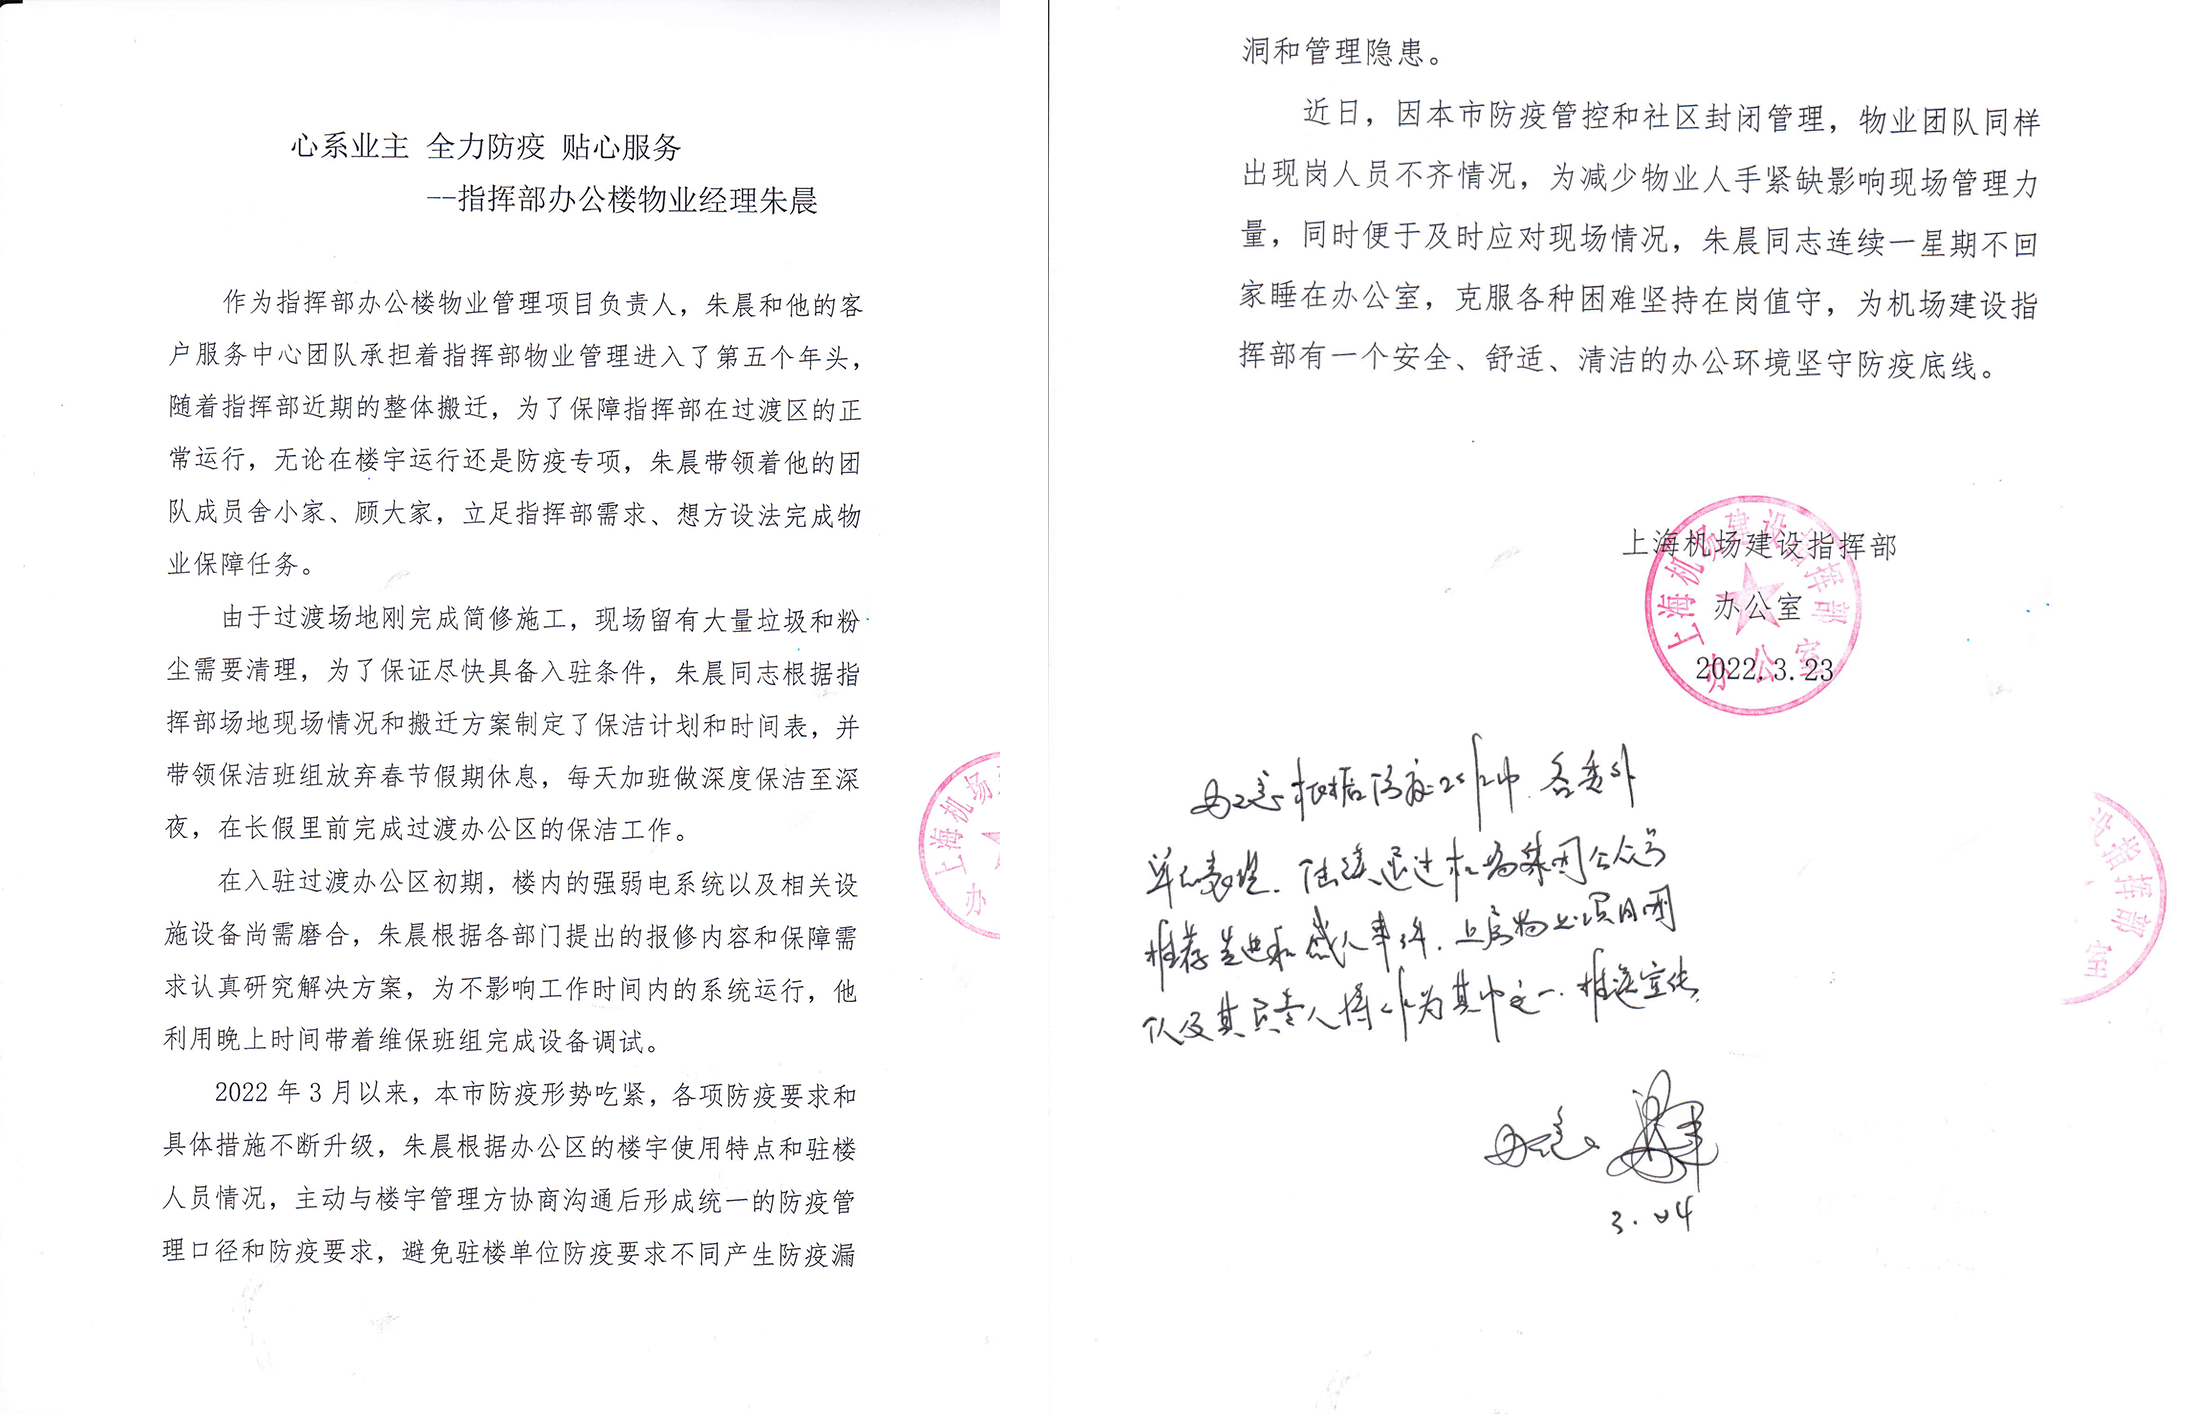 心系业主 全力防疫 贴心服务
--指挥部办公楼物业经理朱晨
作为指挥部办公楼物业管理项目负责人，朱晨和他的客
户服务中心团队承担着指挥部物业管理进入了第五个年头，
随着指挥部近期的整体搬迁，为了保障指挥部在过渡区的正
常运行，无论在楼宇运行还是防疫专项，朱晨带领着他的团
队成员舍小家、顾大家，立足指挥部需求、想方设法完成物
业保障任务。
由于过渡场地刚完成简修施工，现场留有大量垃圾和粉
尘需要清理，为了保证尽快具备入驻条件，朱晨同志根据指
挥部场地现场情况和搬迁方案制定了保洁计划和时间表，并
带领保洁班组放弃春节假期休息，每天加班做深度保洁至深
夜，在长假里前完成过渡办公区的保洁工作。
在入驻过渡办公区初期，楼内的强弱电系统以及相关设
施设备尚需磨合，朱晨根据各部门提出的报修内容和保障需
求认真研究解决方案，为不影响工作时间内的系统运行，他
利用晚上时间带着维保班组完成设备调试。
2022 年 3 月以来，本市防疫形势吃紧，各项防疫要求和
具体措施不断升级，朱晨根据办公区的楼宇使用特点和驻楼
人员情况，主动与楼宇管理方协商沟通后形成统一的防疫管
理口径和防疫要求，避免驻楼单位防疫要求不同产生防疫漏
上海机场
办
洞和管理隐患。
近日，因本市防疫管控和社区封闭管理，物业团队同样
出现岗人员不齐情况，为减少物业人手紧缺影响现场管理力
量，同时便于及时应对现场情况，朱晨同志连续一星期不回
家睡在办公室，克服各种困难坚持在岗值守，为机场建设指
挥部有一个安全、舒适、清洁的办公环境坚守防疫底线。
上海机场建设指挥部
办公室
2022.3.23
上海机场建设指挥部
办公室
设指挥部
室
根据防疫工作中，各委外
单位表现，陆续通过机场集团公众号
推荐先进和感人事迹，物业项目团
队及其负责人将作为其中之一，推送宣传